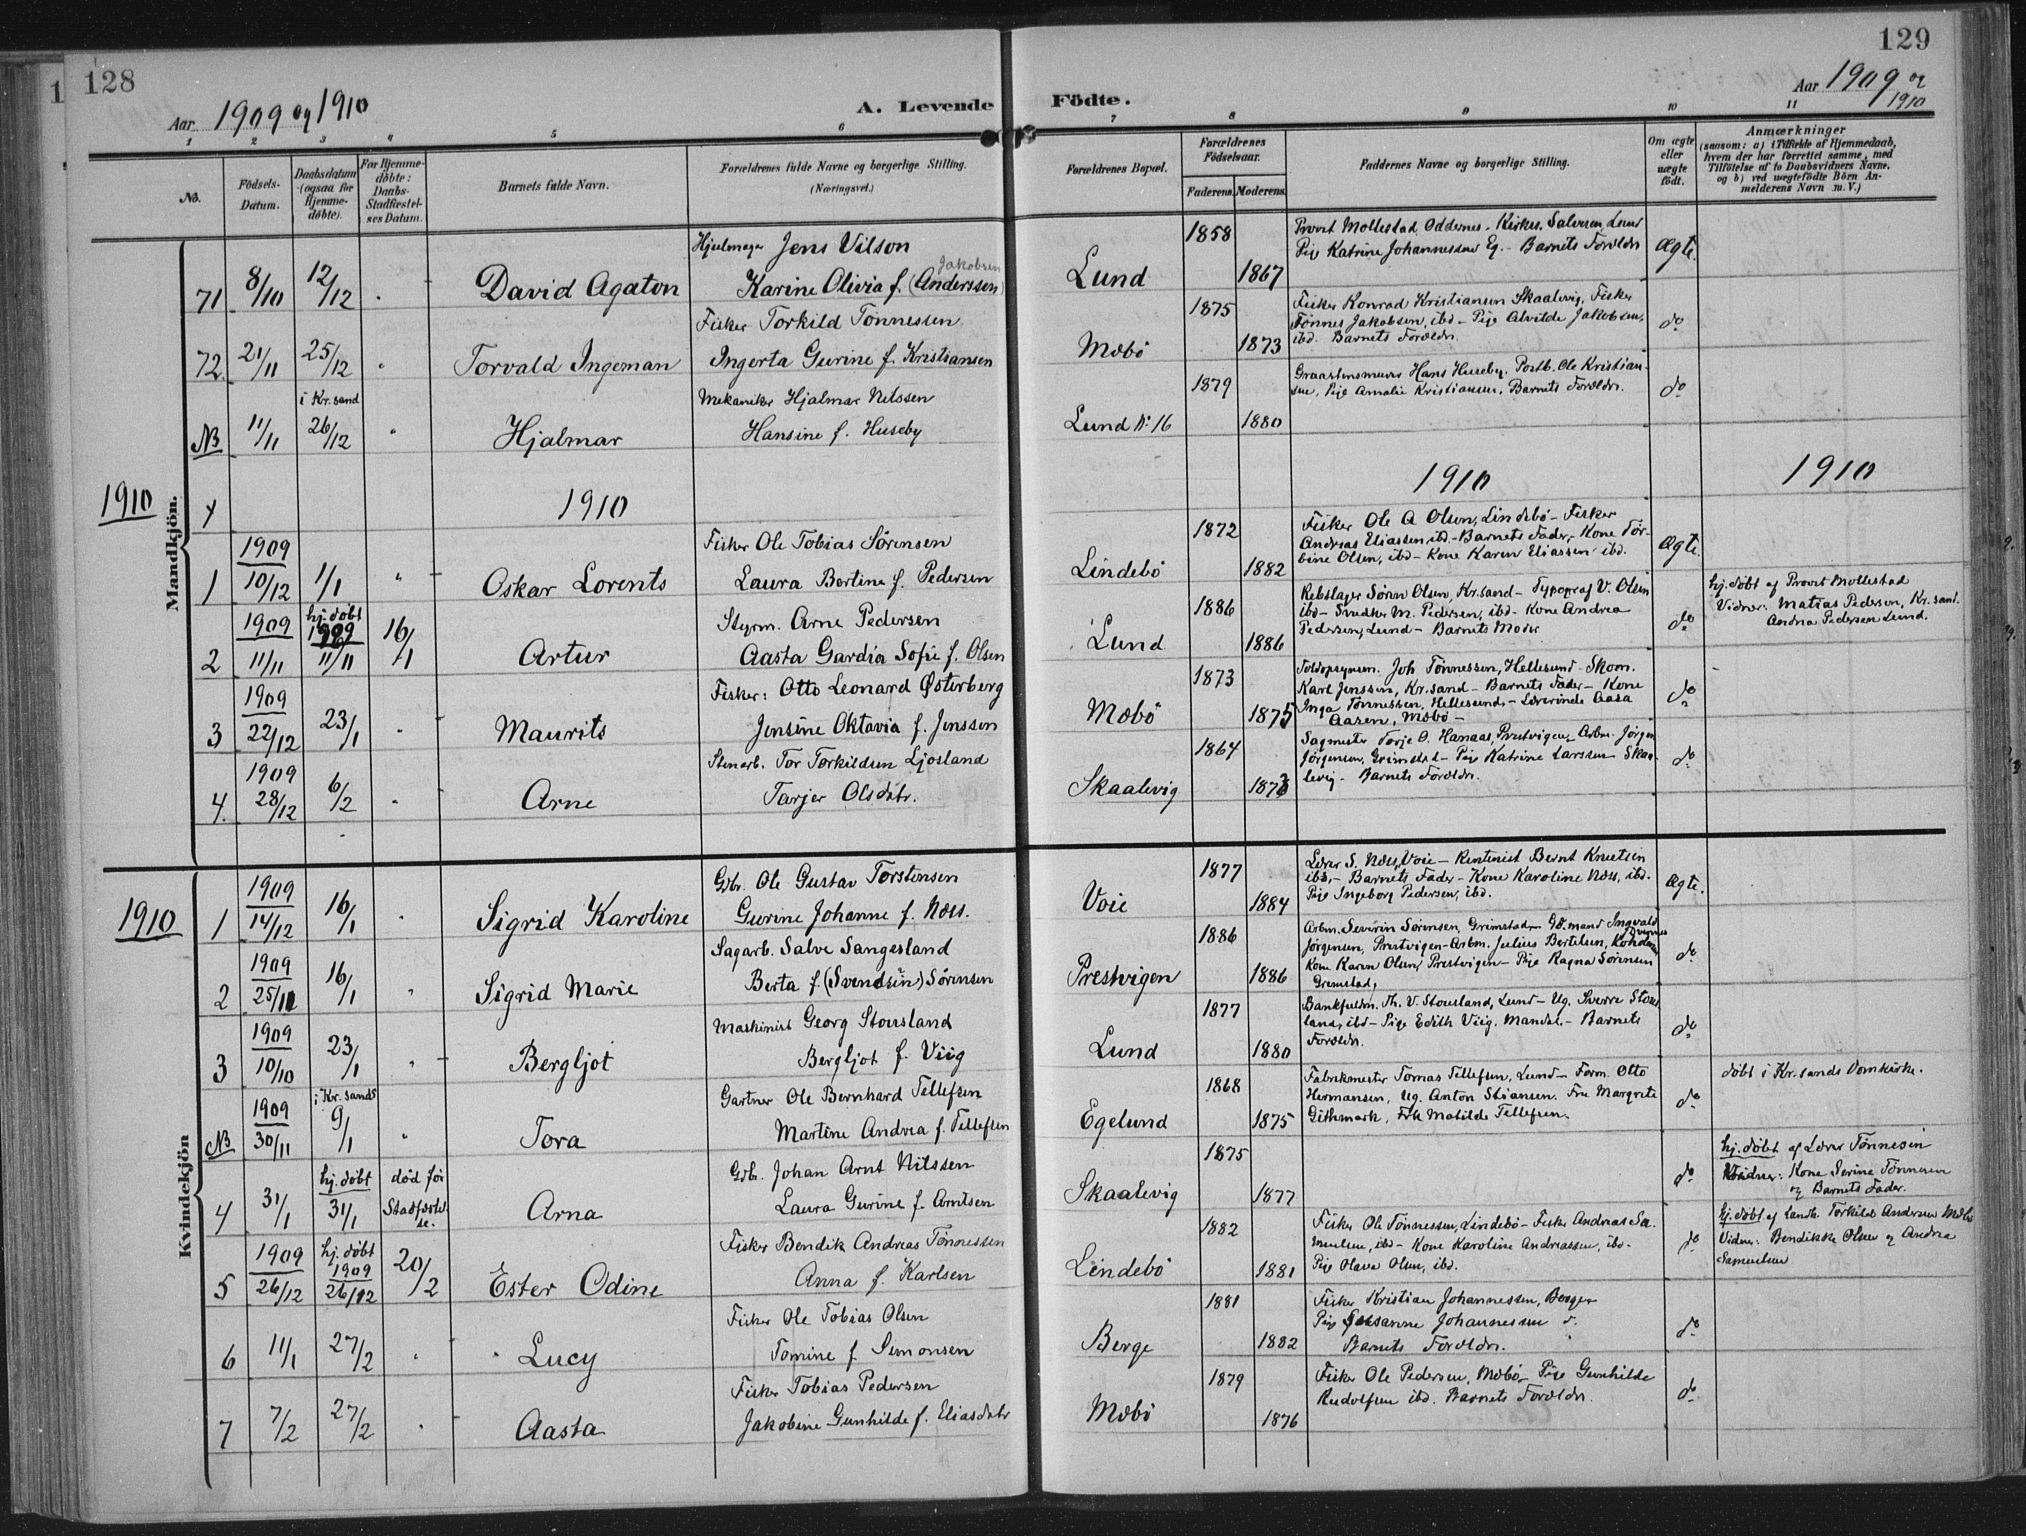 128
Aar 1909 og 1910
A. Levende
1 2 3 4 5 6
No.
Födsels-Datum.
Daabsdatum (ogsaa for Hjemmedöbte).
For Hjemmedöbte: Daabs-Stadfæstelses Datum.
Barnets fulde Navn.
Forældrenes fulde Navne og borgerlige Stilling. (Næringsvei.)
Mandkjön.
Hjulmager Jens Vilson
Jakobsen
71 8/10 12/12 David Agaton Karine Olivia f. (Anderssen)
Fisker Torkild Tönnessen
72 21/11 25/12 Torvald Ingeman Ingerta Gurine f. Kristiansen
i Kr.sand Mekaniker Hjalmar Nilssen
NB 11/11 26/12 Hjalmar Hansine f. Huseby
1910 1910
1909 Fisker Ole Tobias Sörensen
1 10/12 1/1 Oskar Lorents Laura Bertine f. Pedersen
1909 hj. döbt 1909 16/1 Styrm. Arne Pedersen
2 11/11 11/11 Artur Aasta Gardia Sofie f. Olsen
1909 Fisker: Otto Leonard Østerberg
3 22/12 23/1 Maurits Jensine Oktavia f. Jenssen
1909 Stenarb. Tor Torkildsen Ljosland
4. 28/12 6/2 Arne Tarjer Olsdtr.
1910
Kvindekjön
1909 Gbr. Ole Gustav Torstensen
1 14/12 16/1 Sigrid Karoline Gurine Johanne f. Næss.
1909 Sagarb. Salve Sangesland
2 25/11 16/1 Sigrid Marie Berta f. (Svendsen) Sörensen
1909 Maskinist Georg Stousland
3 10/10 23/1 Bergljot Bergljot f. Viig
1909 i Kr.sands Gartner Ole Bernhard Tellefsen
NB 30/11 9/1 Tora Martine Andrea f. Tellefsen
hj. döbt död för Stadfæstelse. Gbr. Johan Arnt Nilssen
4 31/1 31/1 Arna Laura Gurine f. Arntsen
1909 hj. döbt 1909 20/2 Fisker Bendik Andreas Tönnessen
5 26/12 26/12 Ester Odine Anna f. Karlsen
Fisker Ole Tobias Olsen
6 11/1 27/2 Lucy Tomine f. Simonsen
Fisker Tobias Pedersen
7 7/2 27/2 Aasta Jakobine Gunhilde f. Eliasdtr
129
Födte.
Aar 1909 og 1910
7 8 9 10 11
Forældrenes Bopæl.
Forældrenes Födselsaar.
Faderens. Moderens.
Faddernes Navne og borgerlige Stilling.
Om ægte eller uægte födt.
Anmærkninger
(saasom: a) i Tilfælde af Hjemmedaab, hvem der har forrettet samme, med Tilföielse af to Daabsvidners Navne, og b) ved uægtefödte Börn Anmelderens Navn m. V.)
Lund 1858 1867 Provst Mollestad, Oddernes. Kirkes. Salvesen, Lund
Pige Katrine Johannessen Eg. - Barnets Foreldre Ægte.
Mæbö 1875 1873 Fisker Konrad Kristiansen Skaalevig, Fisker
Tönnes Jakobsen, ibd - Pige Alvilde Jakobsen,
ibd. Barnets Foreldre. do
Lund No 16 1879 1880 Hans Huseby. Postb. Ole Kristiansen,
Pige Amalie Kristiansen, Barnets Foreldre. do
1910 1910
Lindebö 1872 1882 Fisker Ole A Olsen, Lindebö - Fisker
Andreas Eliassen, ibd - Barnets Fader, - Kone Torbine
Olsen, ibd - Kone Karen Eliassen ibd. Ægte.
Lund 1886 1886 Rebslager Sören Olsen, Kr.sand - Typograf V. Olsen
ibd - Snedker M. Pedersen, ibd - Kone Andrea
Pedersen, Lund - Barnets Moder do
hj. döbt af Provst Mollestad
Vidner: Matias Pedersen, Kr.sand.
Andrea Pedersen Lund.
Mæbö 1873 1875 Toldopsynsm. Joh Tönnessen, Hellesund - Skom.
Karl Jenssen, Kr.sand - Barnets Fader - Kone
Inga Tönnessen, Hellesund, - Lærerinde Aasa
Aasen, Mæbö - do
Skaalevig 1864 1873 Sagmester Terje O. Hanaas, Prestvigen, - Arbm. Jörgen
Jörgensen, Grimstad - Pige Katrine Larssen Skaalevig
- Barnets Foreldre. do
Voie 1877 1884 Lærer S. Næss, Voie - Rentenist Bernt Knutsen
ibd, - Barnets Fader - Kone Karoline Næss, ibd.
Pige Ingeborg Pedersen, ibd. Ægte.
Prestvigen 1886 1886 Arbm. Severin Sörensen, Grimstad, - Gbmand Ingvald
Jörgensen, Prestvigen - Arbm. Julius Bertelsen,
Kone Karen Olsen, Prestvigen - Pige Ragna Sörensen
Grimstad, do
Lund 1877 1880 Bankfuldm. Th. V. Stousland, Lund - Ug. Sverre Stousland,
ibd - Pige Edith Viig. Mandal. - Barnets
Foreldre. do
Egelund 1868 1875 Fabrikmester Tomas Tellefsen, Lund - Form. Otto
Hermansen, Ug. Anton Stiansen. Fru Margrete
Githmark, Frk Matilde Tellefsen. do
döbt i Kr.sands Domkirke.
Skaalevig 1875 1877 do
hj. döbt af Lærer Tönnesen
Vidner: Kone Serine Tönnesen
og Barnets Fader.
Lindebö 1882 1881 Fisker Ole Tönnessen, Lindebö - Fisker Andreas Samuelsen,
ibd - Kone Karoline Andreassen, ibd.
Pige Olava Olsen, ibd. do
hj. döbt af Landh. Torkild Andersen Mæbö
Vidner: Bendikke Olsen og Andrea
Samuelsen
Berge 1881 1882 Fisker Kristian Johannessen, Berge
Pige Susanne Johannessen
Barnets Foreldre. do
Mæbö 1879 1876 Fisker Ole Pedersen, Mæbö, Pige Gunhilde
Rudolfsen ibd. Barnets Foreldre. do